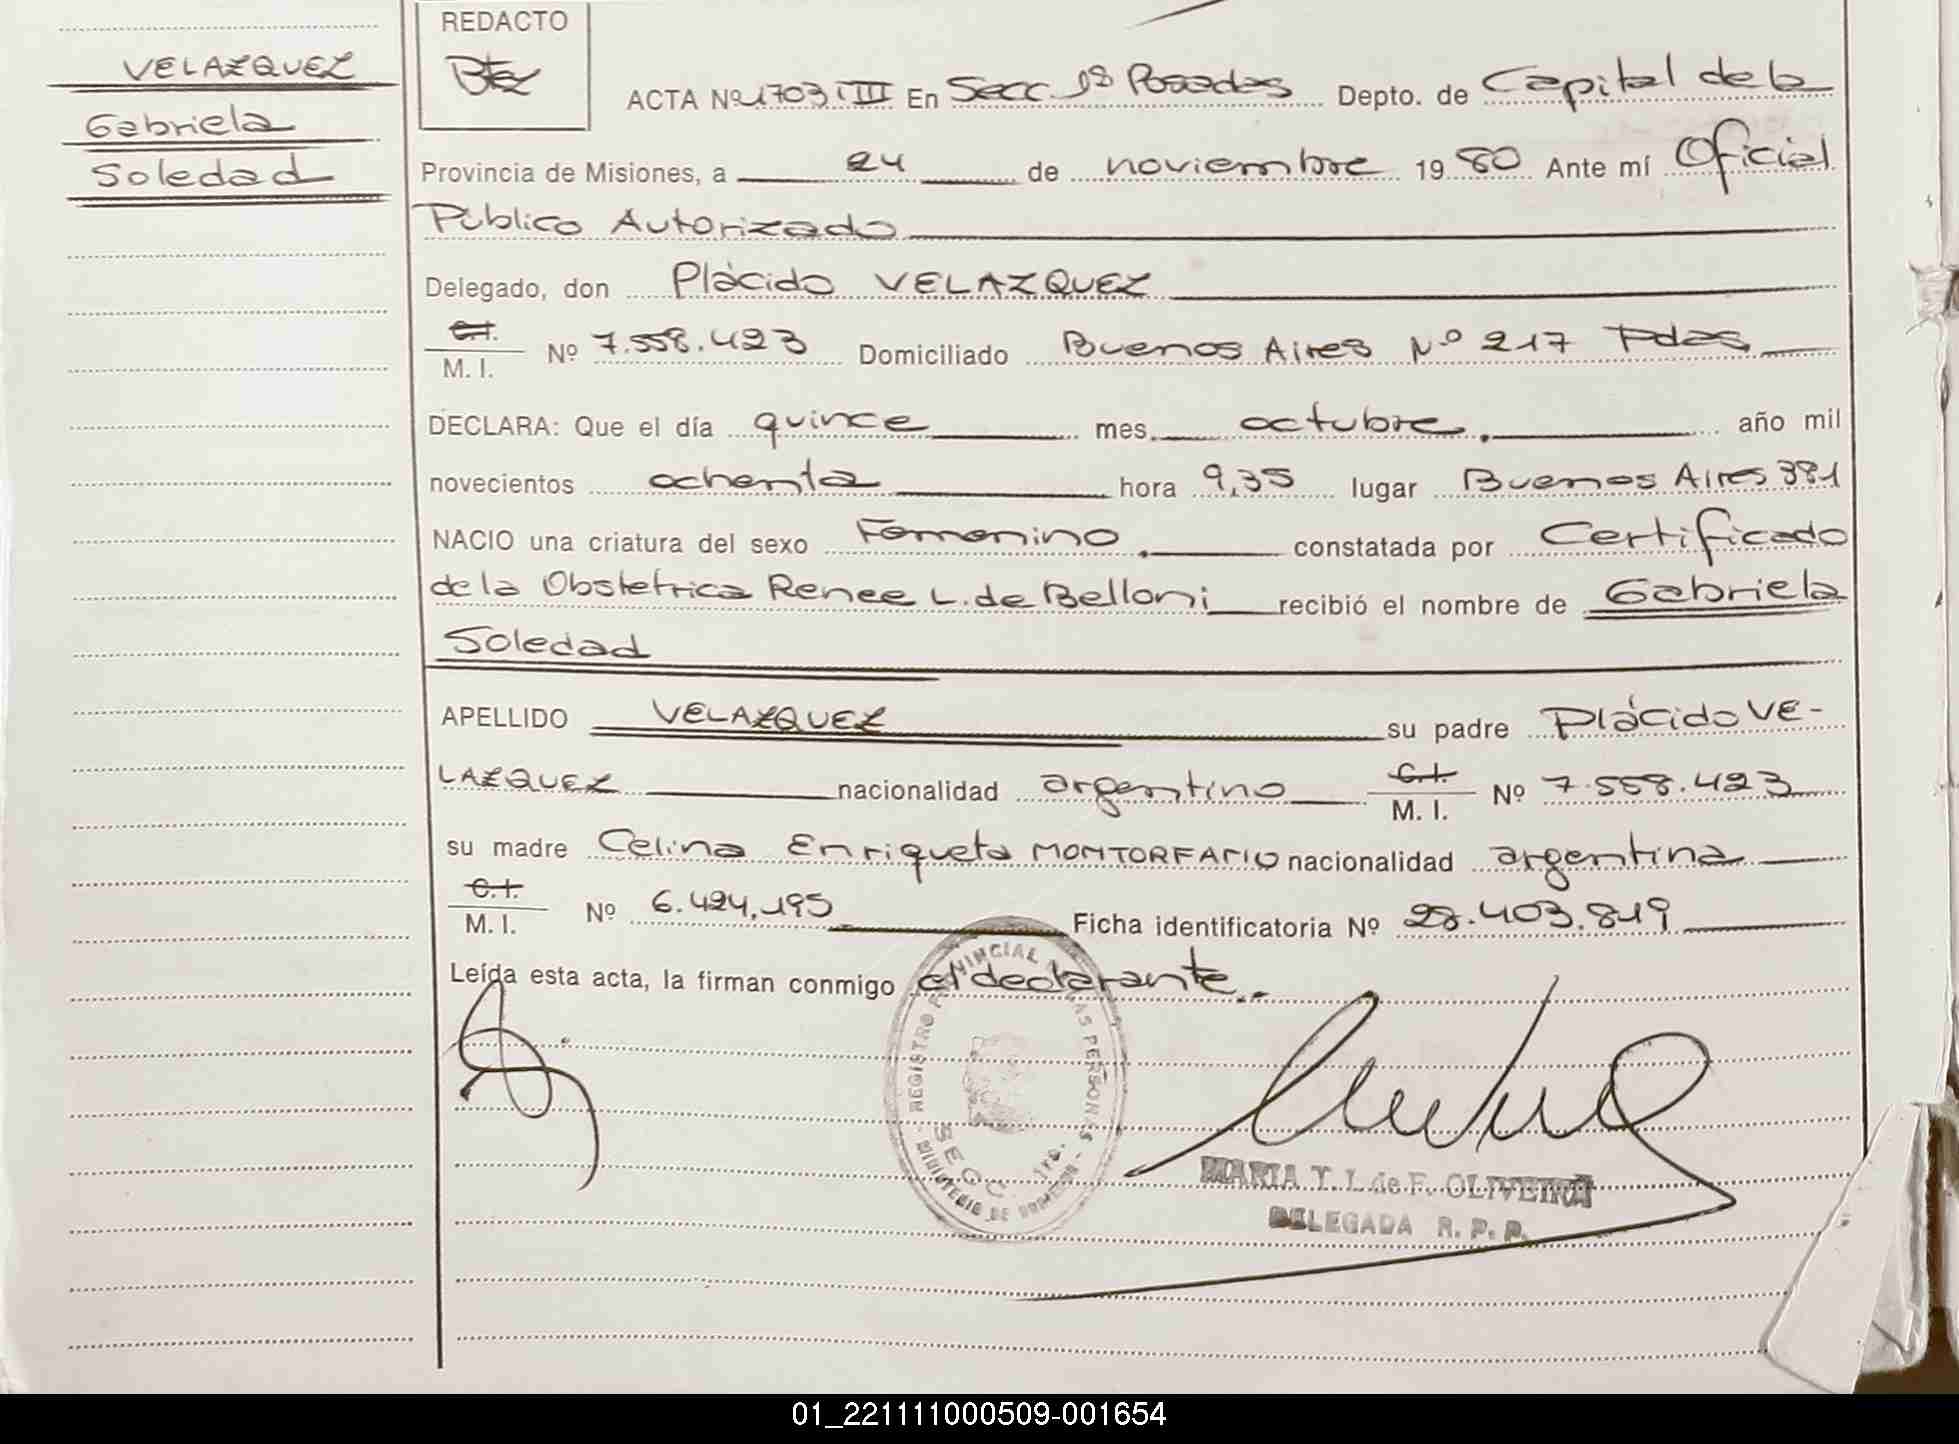 VELAZQUEZ
Gabriela
Soledad
REDACTO
ACTA Nº 1703 III En Secc. 1ª Posadas Depto. de Capital de la
Provincia de Misiones, a 24 de noviembre 1980 Ante mí Oficial
Público Autorizado
Delegado, don Plácido VELAZQUEZ
C.I.
M. I. Nº 7.558.423 Domiciliado Buenos Aires Nº 217 Pdas
DECLARA: Que el día quince mes octubre. año mil
novecientos ochenta hora 9,35 lugar Buenos Aires 381
NACIO una criatura del sexo Femenino. constatada por Certificado
de la Obstetrica Renee L. de Belloni recibió el nombre de Gabriela
Soledad
APELLIDO VELAZQUEZ su padre Plácido VE-
LAZQUEZ nacionalidad argentino C.I. M. I. Nº 7.558.423
su madre Celina Enriqueta MONTORFANO nacionalidad argentina
C.I.
M. I. Nº 6.424.195 Ficha identificatoria Nº 28.403.819
Leída esta acta, la firman conmigo el declarante..
REGISTRO PROVINCIAL DE LAS PERSONAS
SECC. 1ra.
MINISTERIO DE GOBIERNO
MARIA T. I. de F. OLIVEIRA
DELEGADA R. P. P.
01_221111000509-001654